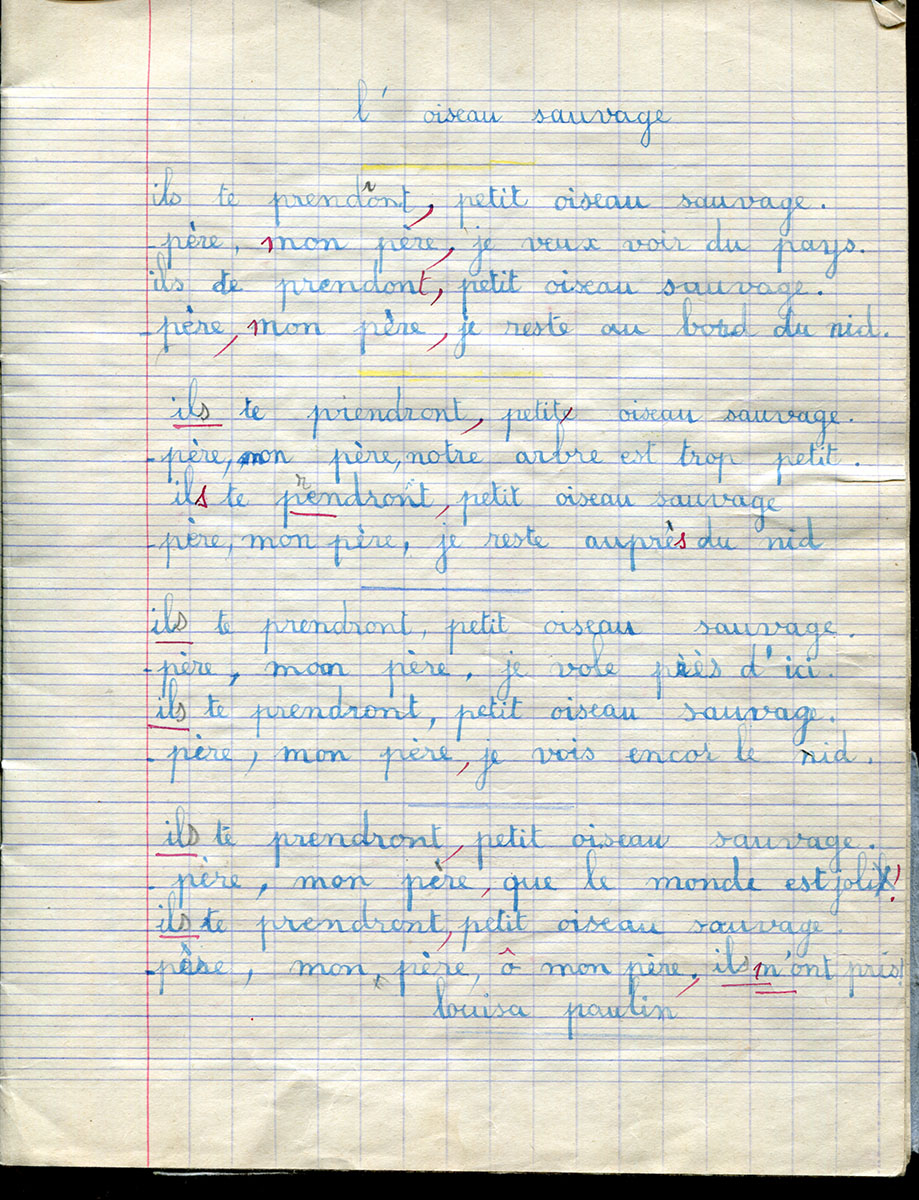 l'oiseau sauvage
ils te prendront, petit oiseau sauvage.
- père, mon père, je veux voir du pays.
ils te prendont, petit oiseau sauvage.
- père, mon père, je reste au bord du nid.
ils te prendront, petit oiseau sauvage.
- père, mon père, notre arbre est trop petit.
ils te prendront, petit oiseau sauvage
- père, mon père, je reste auprès du nid
ils te prendront, petit oiseau sauvage.
- père, mon père, je vole près d'ici.
ils te prendront, petit oiseau sauvage.
- père, mon père, je vois encor le nid.
ils te prendront, petit oiseau sauvage.
- père, mon père, que le monde est joli!
ils te prendront, petit oiseau sauvage.
- père, mon père, ô mon père, ils m'ont pris!
louisa paulin